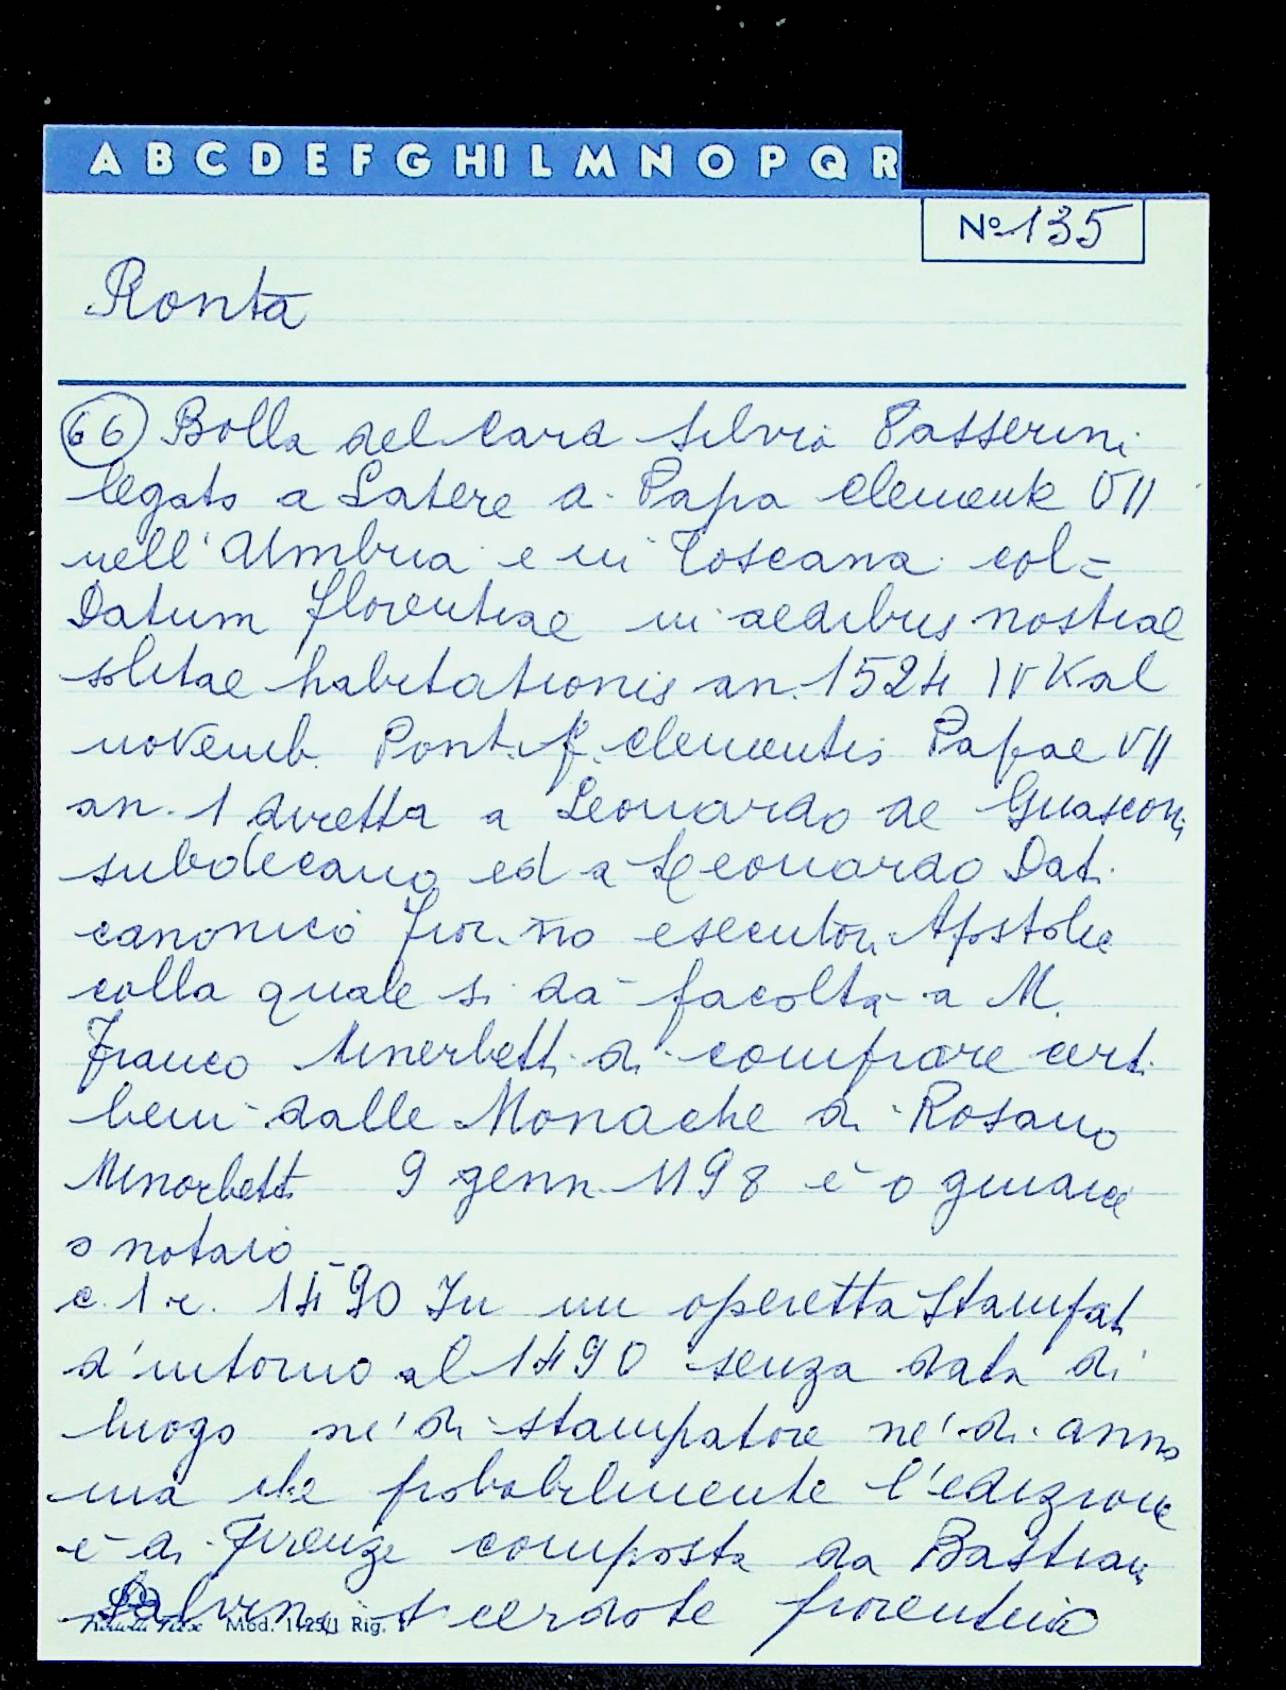 A B C D E F G H I L M N O P Q R
No 135
Ronta
66 Bolla del Card Silvio Passerini
legato a Latere di Papa Clemente VII
nell'Umbria e in Toscana col =
Datum florentiae in aedibus nostrae
solitae habitationis an. 1524 IV Kal
novemb. Pont. f. Clementis Papae VII
an. 1 diretta a Leonardo de Guasconi
subdecano ed a Leonardo Dati
canonico fior.no esecutori Apostolici
colla quale si dà facoltà a M.
Franco Minerbetti di comprare certi
beni dalle Monache di Rosano
Minorbetti 9 genn. 1198 è o giudice
o notaio
c. 1 r. 1490 In un operetta stampat
d'intorno al 1490 senza data di
luogo nè di stampatore nè di anno
ma che probabilmente l'edizione
è di Firenze composta da Bastian
Salvini sacerdote fiorentino
Mod. 1125/1 Rig. 1